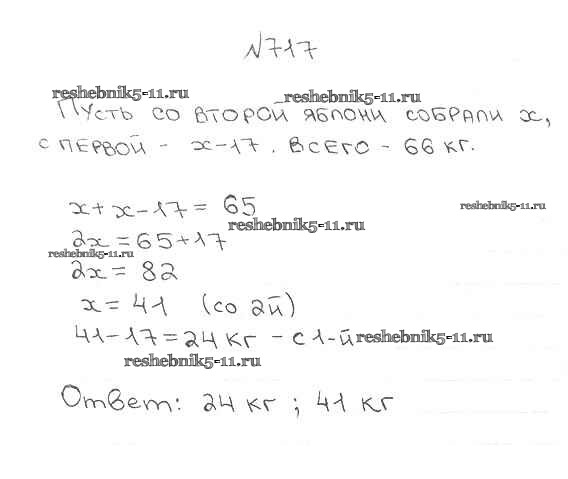 №717
reshebnik5-11.ru reshebnik5-11.ru
Пусть со второй яблони собрали x,
с первой - x-17. Всего - 66 кг.
x+x-17=65
reshebnik5-11.ru
reshebnik5-11.ru
2x=65+17
reshebnik5-11.ru
2x=82
x=41 (со 2й)
41-17=24 кг - с 1-й
reshebnik5-11.ru
reshebnik5-11.ru
Ответ: 24 кг; 41 кг